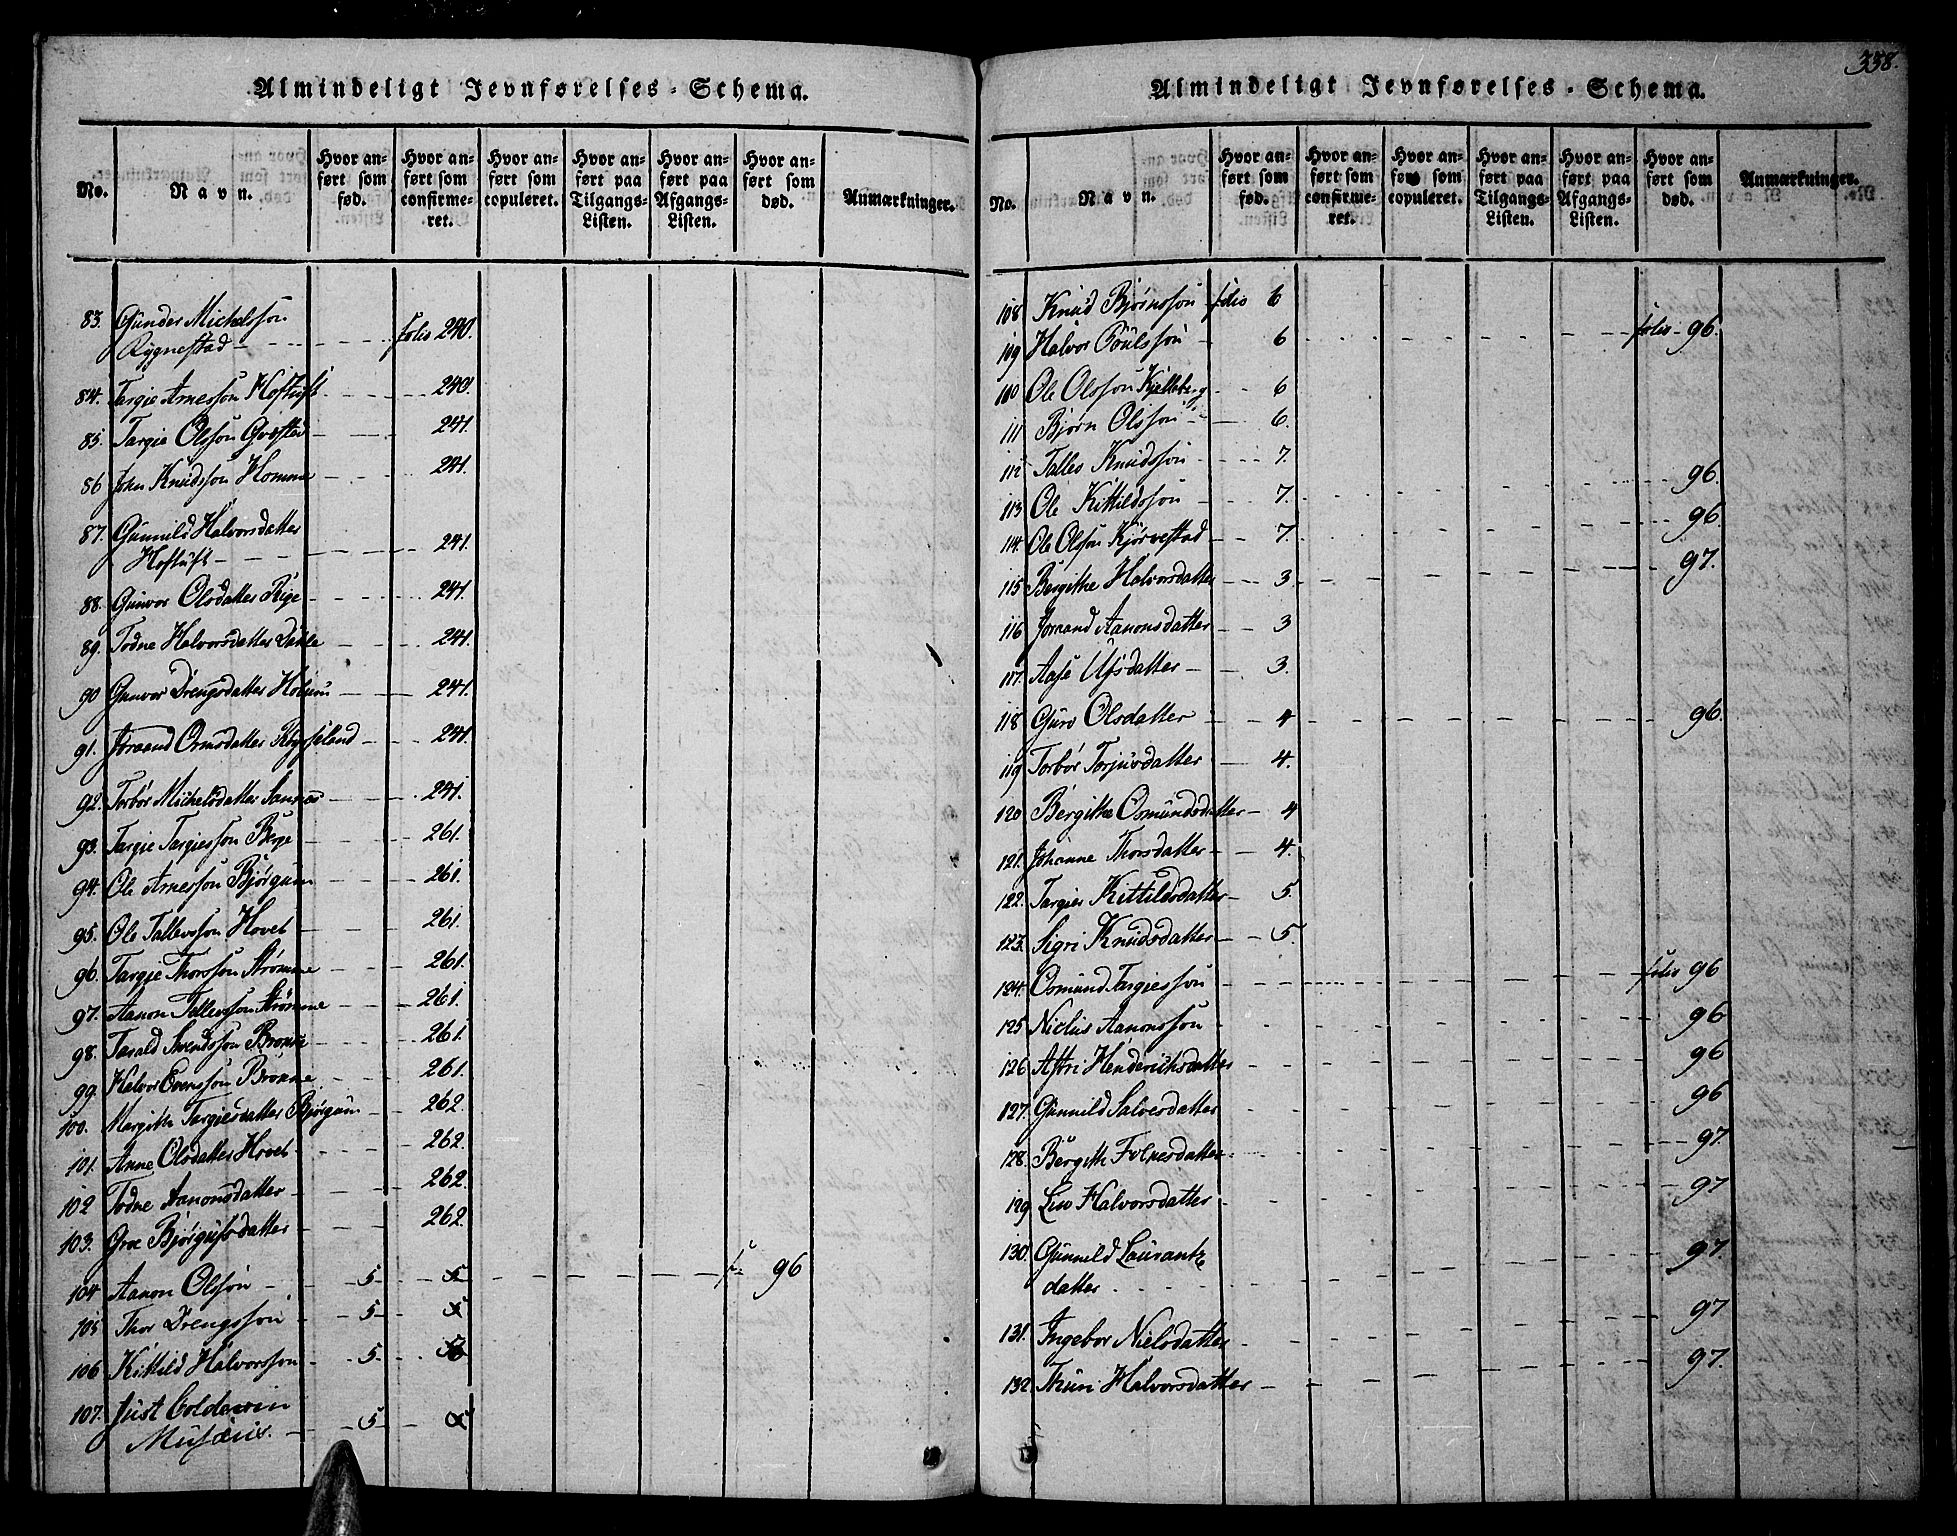 Almindeligt Jevnførelses-Schema.
No.
Navn.
Hvor anført som fød.
Hvor anført som confirmeret.
Hvor anført som copuleret.
Hvor anført paa Tilgangs-Listen.
Hvor anført paa Afgangs-Listen.
Hvor anført som død.
Anmærkninger.
83. Gunder Michelsson
Rygnestad - folio 240.
84. Targie Arnesson Hoftuft - 240.
85. Targie Olsson Questad - 241.
86 John Knudsson Homme - 241.
87. Gunnild Halvorsdatter
Hoftuft - 241.
88. Gunvor Olsdatter Rige - 241.
89. Todne Halvorsdatter Dahle - 241.
90 Gunvor Drengsdatter - 241.
91. Joraand Ormsdatter - 241.
92. Torbor Michelsdatter - 241.
93. Targie Targiesson Berge - 261.
94. Ole Arnesson Bjørgum - 261.
95. Ole Tallevsson Hovet - 261.
96. Targie Thorsson Strømme - 261.
97. Aanon Tallevsson Strømme - 261.
98. Tarald Svendsson - 261.
99. Halvor Evensson - 261.
100. Margith Targiesdatter Bjørgum - 262.
101. Anne Olsdatter Hovet - 262.
102 Todne Aanonsdatter - 262.
103. Groe Bjørgufsdatter - 262.
104 Aanon Olsson - 5 - 5 - f. 96
105 Thor Drengsson - 5 -
106 Kittild Halvorsson - 5 -
107. Just Coldevin
Musæus. - 5 -
338.
Almindeligt Jevnførelses-Schema.
No.
Navn.
Hvor anført som fød.
Hvor anført som confirmeret.
Hvor anført som copuleret.
Hvor anført paa Tilgangs-Listen.
Hvor anført paa Afgangs-Listen.
Hvor anført som død.
Anmærkninger.
108 Knud Bjørnsson folio 6
109 Halvor Poulsson - 6 - folio 96.
110 Ole Olsson Kjelleberg - 6
111 Bjørn Olsson - 6.
112 Talleo Knudsson - 7.
113 Ole Kittildsson - 7. - 96.
114. Ole Olsson Kjørvestad - 7 - 96.
115 Bergithe Halvorsdatter - 3. - 97.
116 Joraand Aanonsdatter - 3
117. Aase Ufsdatter - 3.
118 Guro Olsdatter - 4 - 96.
119 Torbor Torjusdatter - 4.
120 Bergithe Osmundsdatter - 4
121. Johanne Thorsdatter - 4.
122. Targier Kittildsdatter - 5.
123. Sigri Knudsdatter - 5.
124. Osmund Targiesson - folio 96
125 Niclus Aanonsson - 96
126 Astri Hendrichsdatter - 96
127. Gunnild Salvesdatter - 96
128. Bergith Folkesdatter - 97
129 Liv Halvorsdatter - 97
130. Gunnild Laurantz
datter - 97
131. Ingebor Nielsdatter - 97
132. Thuri Halvorsdatter - 97.